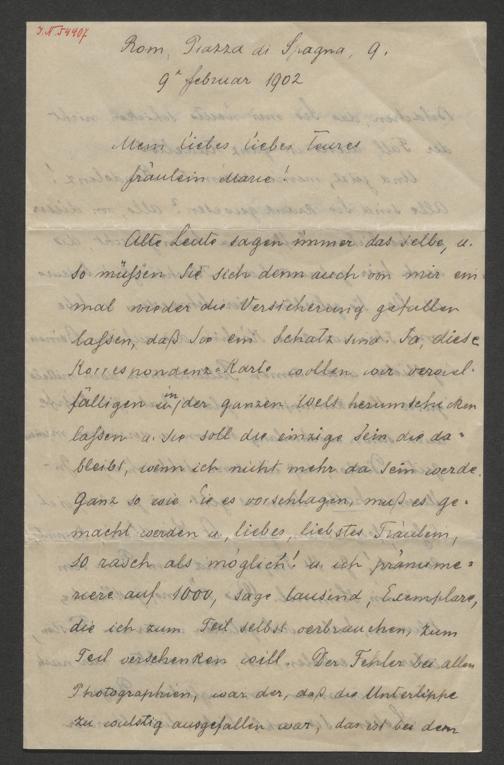 I.N. 54407
Rom, Piazza di Spagna, 9.
9ᵃ februar 1902
Mein liebes liebes Teures
fräulein Marie!
Alte Leute sagen immer das selbe, u.
so müßen Sie sich denn auch von mir ein
mal wieder die Versicherung gefallen
laßen, daß Sie ein Schatz sind. Ja, diese
Korrespondenz-Karte wollen wir verviel-
fältigen in der ganzen Welt herumschicken
laßen u. sie soll die einzige sein die da=
bleibt, wenn ich nicht mehr da sein werde.
Ganz so wie Sie es vorschlagen, muß es ge=
macht werden u, liebes, liebstes Fräulein,
so rasch als möglich! u ich pränume=
riere auf 1000, sage tausend, Exemplare,
die ich zum Teil selbst verbrauchen, zum
Teil verschenken will. Der Fehler bei allen
Photographien, war der, daß die Unterlippe
zu wulstig ausgefallen war, das ist bei dem